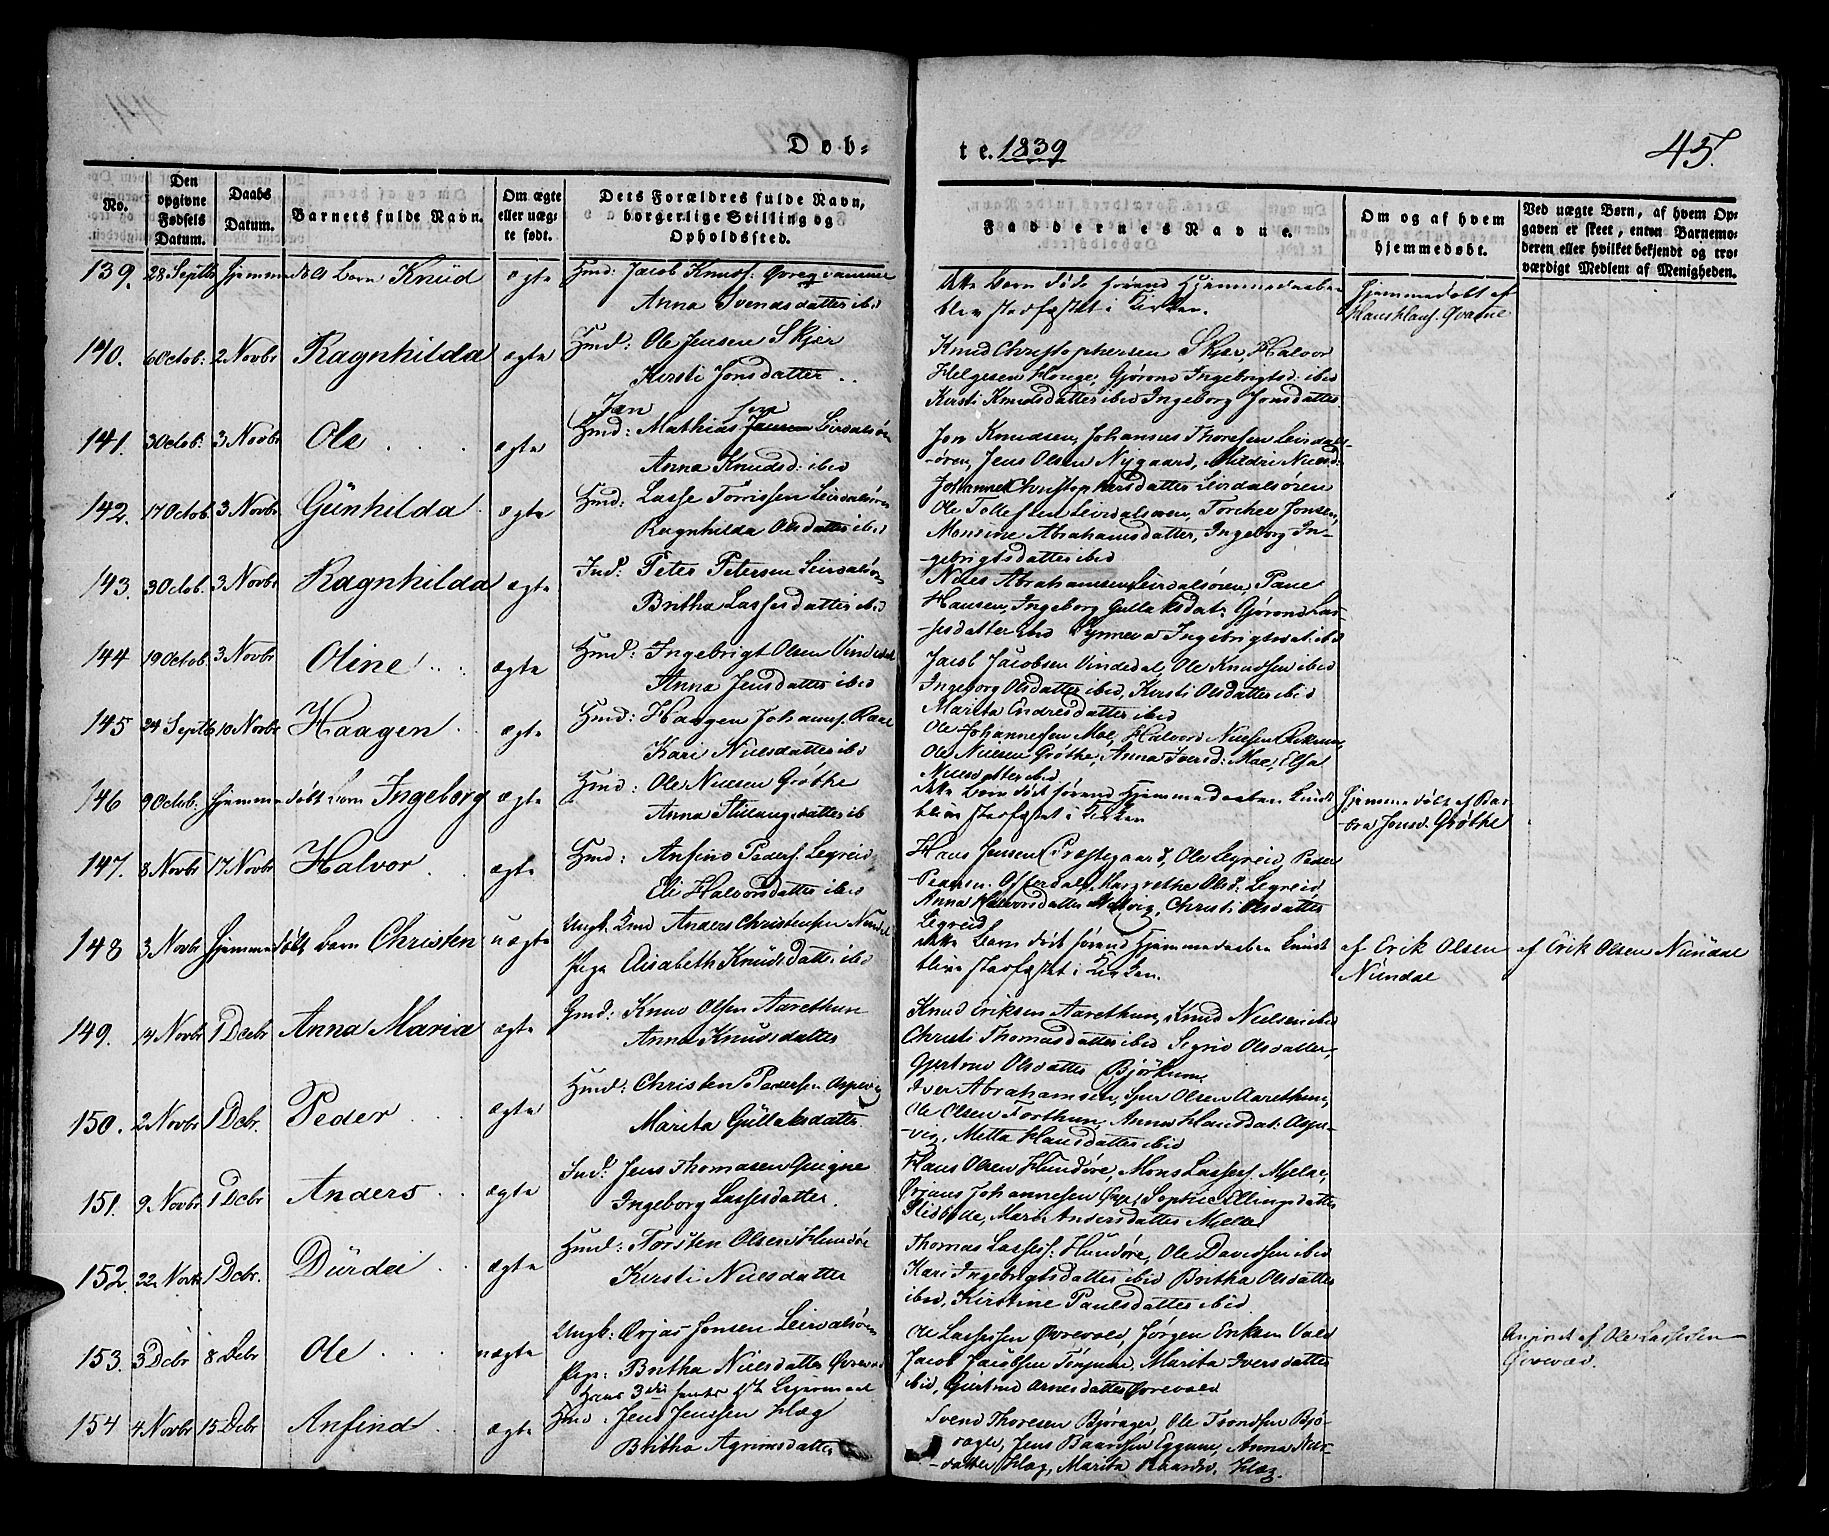 Døb-
te. 1839
45.
No.
Den opgivne Fødsels Datum.
Daabs Datum.
Barnets fulde Navn.
Om ægte eller uægte født.
Dets Forældres fulde Navn, borgerlige Stilling og Opholdssted.
Faddernes Navne.
Om og af hvem hjemmedøbt.
Ved uægte Børn, af hvem Opgaven er skeet, enten Barnemoderen eller hvilket bekjendt og troværdigt Medlem af Menigheden.
139. 28 Septb Hjemmedøbt barn Knud ægte
Hmd: Jacob Knuds:
Anna Svendsdatter ibid
blev stadfæstet i Kirken.
Hjemmedøbt af
140. 6 Octob: 2 Novbr Ragnhilda ægte
Hmd: Ole Jensen Skjær
Kirsti Jonsdatter
Knud Christophersen Skjær, Halvor
Helgesen Houge, Gjørond Ingebrigtsd: ibid
Kirsti Knudsdatter ibid Ingeborg Jonsdatter
141. 3 Octob: 3 Novbr Ole ægte
Hmd: Mathias Leirdalsøren
Anna Knudsd: ibid
Jon Knudsen, Johannes Thoresen Leirdals-
-øren, Jens Olsen Nygaard, Mildri Nielsd:
Christophersdatter Leirdalsøren
142. 17 Octob. 3 Novbr Gunhilda ægte
Hmd: Lasse Torrissen Leirdalsøren
Ragnhilda Olsdatter ibid
Ole Tollefsen Leirdalsøren, Torchel Jonsen,
Monsine Abrahamsdatter, Ingeborg In-
-gebrigtsdatter ibid
143. 3 Octob. 3 Novbr Ragnhilda ægte
Ind: Peter Petersen Leirdalsøren
Britha Lassesdatter ibid
Niels Abrahamsen Leirdalsøren, Paul
Hansen, Ingeborg Gullaksdat: Gjørond Las-
-sesdatter ibid Synneva Ingebrigtsdat: ibid
144 19 Octob. 3 Novbr Oline ægte
Hmd: Ingebrigt Olsen Vindedal
Anna Jensdatter ibid
Jacob Jacobsen Vindedal, Ole Knudsen ibid
Ingeborg Olsdatter ibid, Kirsti Olsdatter ibid
Marita Endresdatter ibid
145 24 Septb 10 Novbr Haagen ægte
Hmd: Haagen Johanns:
Kari Nielsdatter ibid
Ole Johannesen Moe, Halvord Nielsen
Ole Nielsen Grøthe, Anna Iversd: Moe, Elsa
Nielsdatter ibid
146 9 Octob: Hjemmedøbt barn Ingeborg ægte
Hmd: Ole Nielsen Grøthe
Anna ib
blive stadfæstet i Kirken
Hjemmedøbt af Bar-
bra Jonsd. Grøthe
147. 8 Novbr 17 Novbr Halvor ægte
Hmd: Anfind Peders: Legreid
Eli Halvorsdatter ibid
Hans Jensen Præstegaard, Ole Legreid, Peder
Pedersen Ofterdal, Margrethe Olsd. Legreid
Anna Halvorsdatter Christi Olsdatter
Legreid
148 3 Novbr Hjemmedøbt barn Christen uægte
Ungk. Knud Anders Christensen Nundal
Pige Elisabeth Knudsdatt: ibid
Dette Barn død førend Hjemmedaaben kunde
blive stadfæstet i Kirken.
af Erik Olsen
Nundal
af Erik Olsen Nundal
149. 14 Novbr 1 Decbr Anna Maria ægte
Gmd: Knud Olsen Aarethun
Anna Knudsdatter
Knud Eriksen Aarethun, Knud Nielsen ibid
Christi Thomasdatter ibid Sigrid Olsdatter,
Gjertrud Olsdatter Bjørkum
150. 2 Novbr 1 Dcbr. Peder ægte
Hmd: Christen Pedersen Aspevig
Marita Gullaksdatter
Iver Abrahamsen, Siur Olsen Aarethun,
Ole Olsen Forthun, Anna Hansdat: Aspe-
vig, Metta Hansdatter ibid
151. 9 Novbr 1 Dcbr Anders ægte
Ind: Jens Thomasen
Ingeborg Lassesdatter
Hans Olsen Hundøre, Mons Lasses: Mjelde,
Ørjans Johannesen Sophie Ellingsdatter
Andersdatter Mjelde
152. 22 Novbr 1 Dcbr. Durdei ægte
Hmd: Torsten Olsen Hundøre
Kirsti Nielsdatter
Thomas Lasses: Hundøre, Ole Davidsen ibid
Kari Ingebrigtsdatter ibid Britha Olsdatter
ibid, Kirstine Paulsdatter ibid
153. 3 Dcbr 8 Debr Ole uægte
Ungk: Ørjas Jonsen Leirdalsøren
Pige: Britha Nielsdatter Ørevold
Ole Lassesen Ørevold, Jørgen Eriksen Vold
Jacob Jacobsen Tønjum, Marita Iversdatter
ibid, Gjertrud Arnesdatter Ørevold
Angivet af Ole Lassesen
Ørevold.
154 4 Novbr 15 Dcbr Anfind ægte
Hmd: Jens Jenssen Hæg
Britha Agrimsdatter
Svend Thoresen Ole Trondsen
Jens Baardsen Eggum, Anna
-datter Hæg, Marita Baardsd. Hæg.